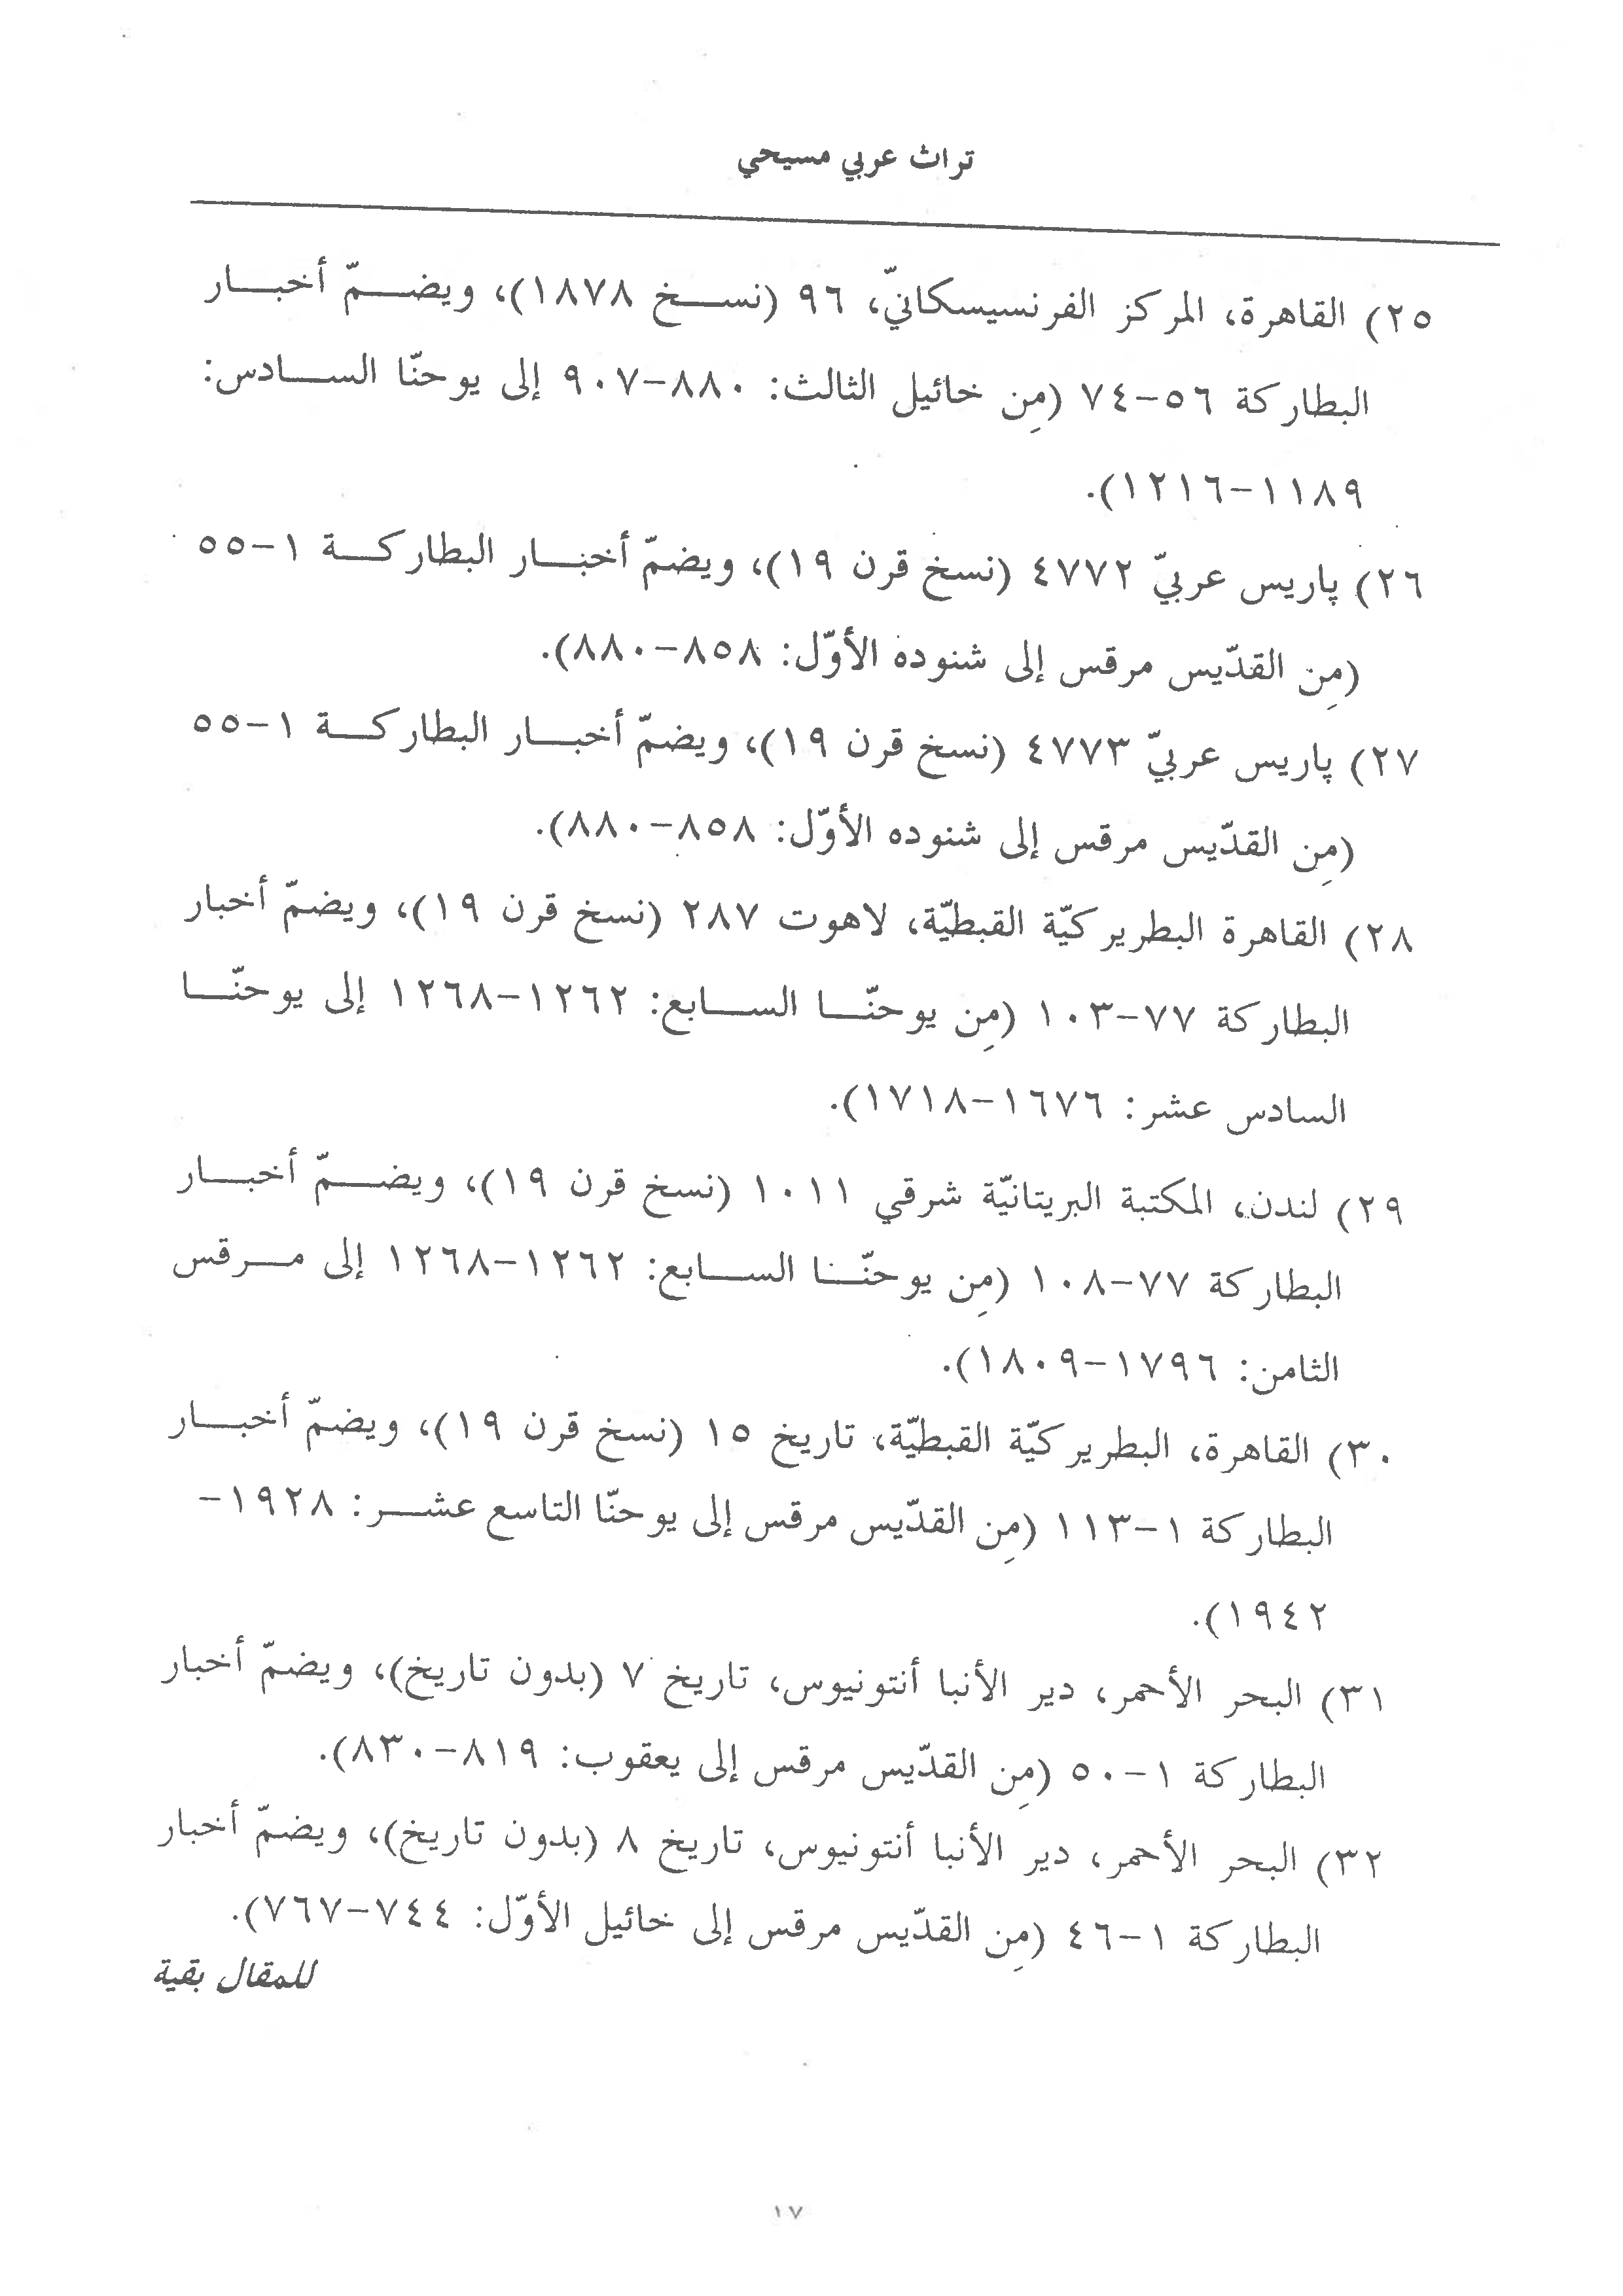 تراث عربي مسيحي
٢٥) القاهرة، المركز الفرنسيسكانيّ، ٩٦ (نسخ ١٨٧٨)، ويضمّ أخبار
البطاركة ٥٦-٧٤ (مِن خائيل الثالث: ٨٨٠-٩٠٧ إلى يوحنّا السادس:
١١٨٩-١٢١٦).
٢٦) پاريس عربيّ ٤٧٧٢ (نسخ قرن ١٩)، ويضمّ أخبار البطاركة ١-٥٥
(مِن القدّيس مرقس إلى شنوده الأوّل: ٨٥٨-٨٨٠).
٢٧) پاريس عربيّ ٤٧٧٣ (نسخ قرن ١٩)، ويضمّ أخبار البطاركة ١-٥٥
(مِن القدّيس مرقس إلى شنوده الأوّل: ٨٥٨-٨٨٠).
٢٨) القاهرة البطريركيّة القبطيّة، لاهوت ٢٨٧ (نسخ قرن ١٩)، ويضمّ أخبار
البطاركة ٧٧-١٠٣ (مِن يوحنّا السابع: ١٢٦٢-١٢٦٨ إلى يوحنّا
السادس عشر: ١٦٧٦-١٧١٨).
٢٩) لندن، المكتبة البريتانيّة شرقي ١٠١١ (نسخ قرن ١٩)، ويضمّ أخبار
البطاركة ٧٧-١٠٨ (مِن يوحنّا السابع: ١٢٦٢-١٢٦٨ إلى مرقس
الثامن: ١٧٩٦-١٨٠٩).
٣٠) القاهرة، البطريركيّة القبطيّة، تاريخ ١٥ (نسخ قرن ١٩)، ويضمّ أخبار
البطاركة ١-١١٣ (مِن القدّيس مرقس إلى يوحنّا التاسع عشر: ١٩٢٨-
١٩٤٢).
٣١) البحر الأحمر، دير الأنبا أنتونيوس، تاريخ ٧ (بدون تاريخ)، ويضمّ أخبار
البطاركة ١-٥٠ (مِن القدّيس مرقس إلى يعقوب: ٨١٩-٨٣٠).
٣٢) البحر الأحمر، دير الأنبا أنتونيوس، تاريخ ٨ (بدون تاريخ)، ويضمّ أخبار
البطاركة ١-٤٦ (مِن القدّيس مرقس إلى خائيل الأوّل: ٧٤٤-٧٦٧).
للمقال بقية
١٧